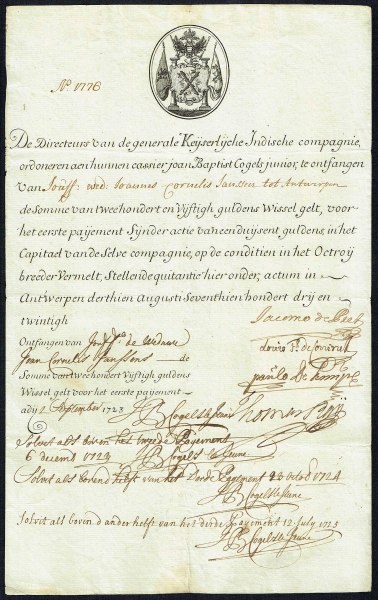 No 1776
De Directeurs van de generale Keyserlijcke Indische compagnie,
ordoneren aen hunnen cassier joan Baptist Cogels junior, te ontfangen
van Jouff: wed: Joannes Cornelis Janssen tot Antwerpen
de Somme van tweehondert en Vijftigh guldens Wissel gelt, voor
het eerste paijement Sijnder actie van eenduijsent guldens, in het
Capitael van de Selve compagnie, op de conditien in het Octroij
breeder Vermelt, Stellende quitantie hier onder, actum in
Antwerpen derthien Augusti Seventhien hondert drij en
twintigh
Jacomo de Pret
Ontfangen van Jouf de Weduwe
Jean Cornelis Janssens de
Somme van tweehondert Vijftigh guldens
Wissel gelt voor het eerste paijement
adij 1 September 1723
J B Cogels le Jeune
Solvit als boven het tweede Payement
6 decemb 1723 J B Cogels le Jeune
Solvit als boven d helft van het derde Payement 23 octob 1724
J B Cogels le Jeune
Solvit als boven d ander helft van het derde Payement 12 july 1725
J B Cogels le Jeune